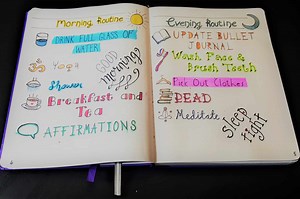 Morning Routine
DRINK FULL GLASS OF
WATER
Yoga
Shower
Breakfast and
Tea
AFFIRMATIONS
GOOD
morning
Evening Routine
UPDATE BULLET
JOURNAL
Wash Face &
Brush Teeth
Pick Out Clothes
READ
Meditate
Sleep
tight